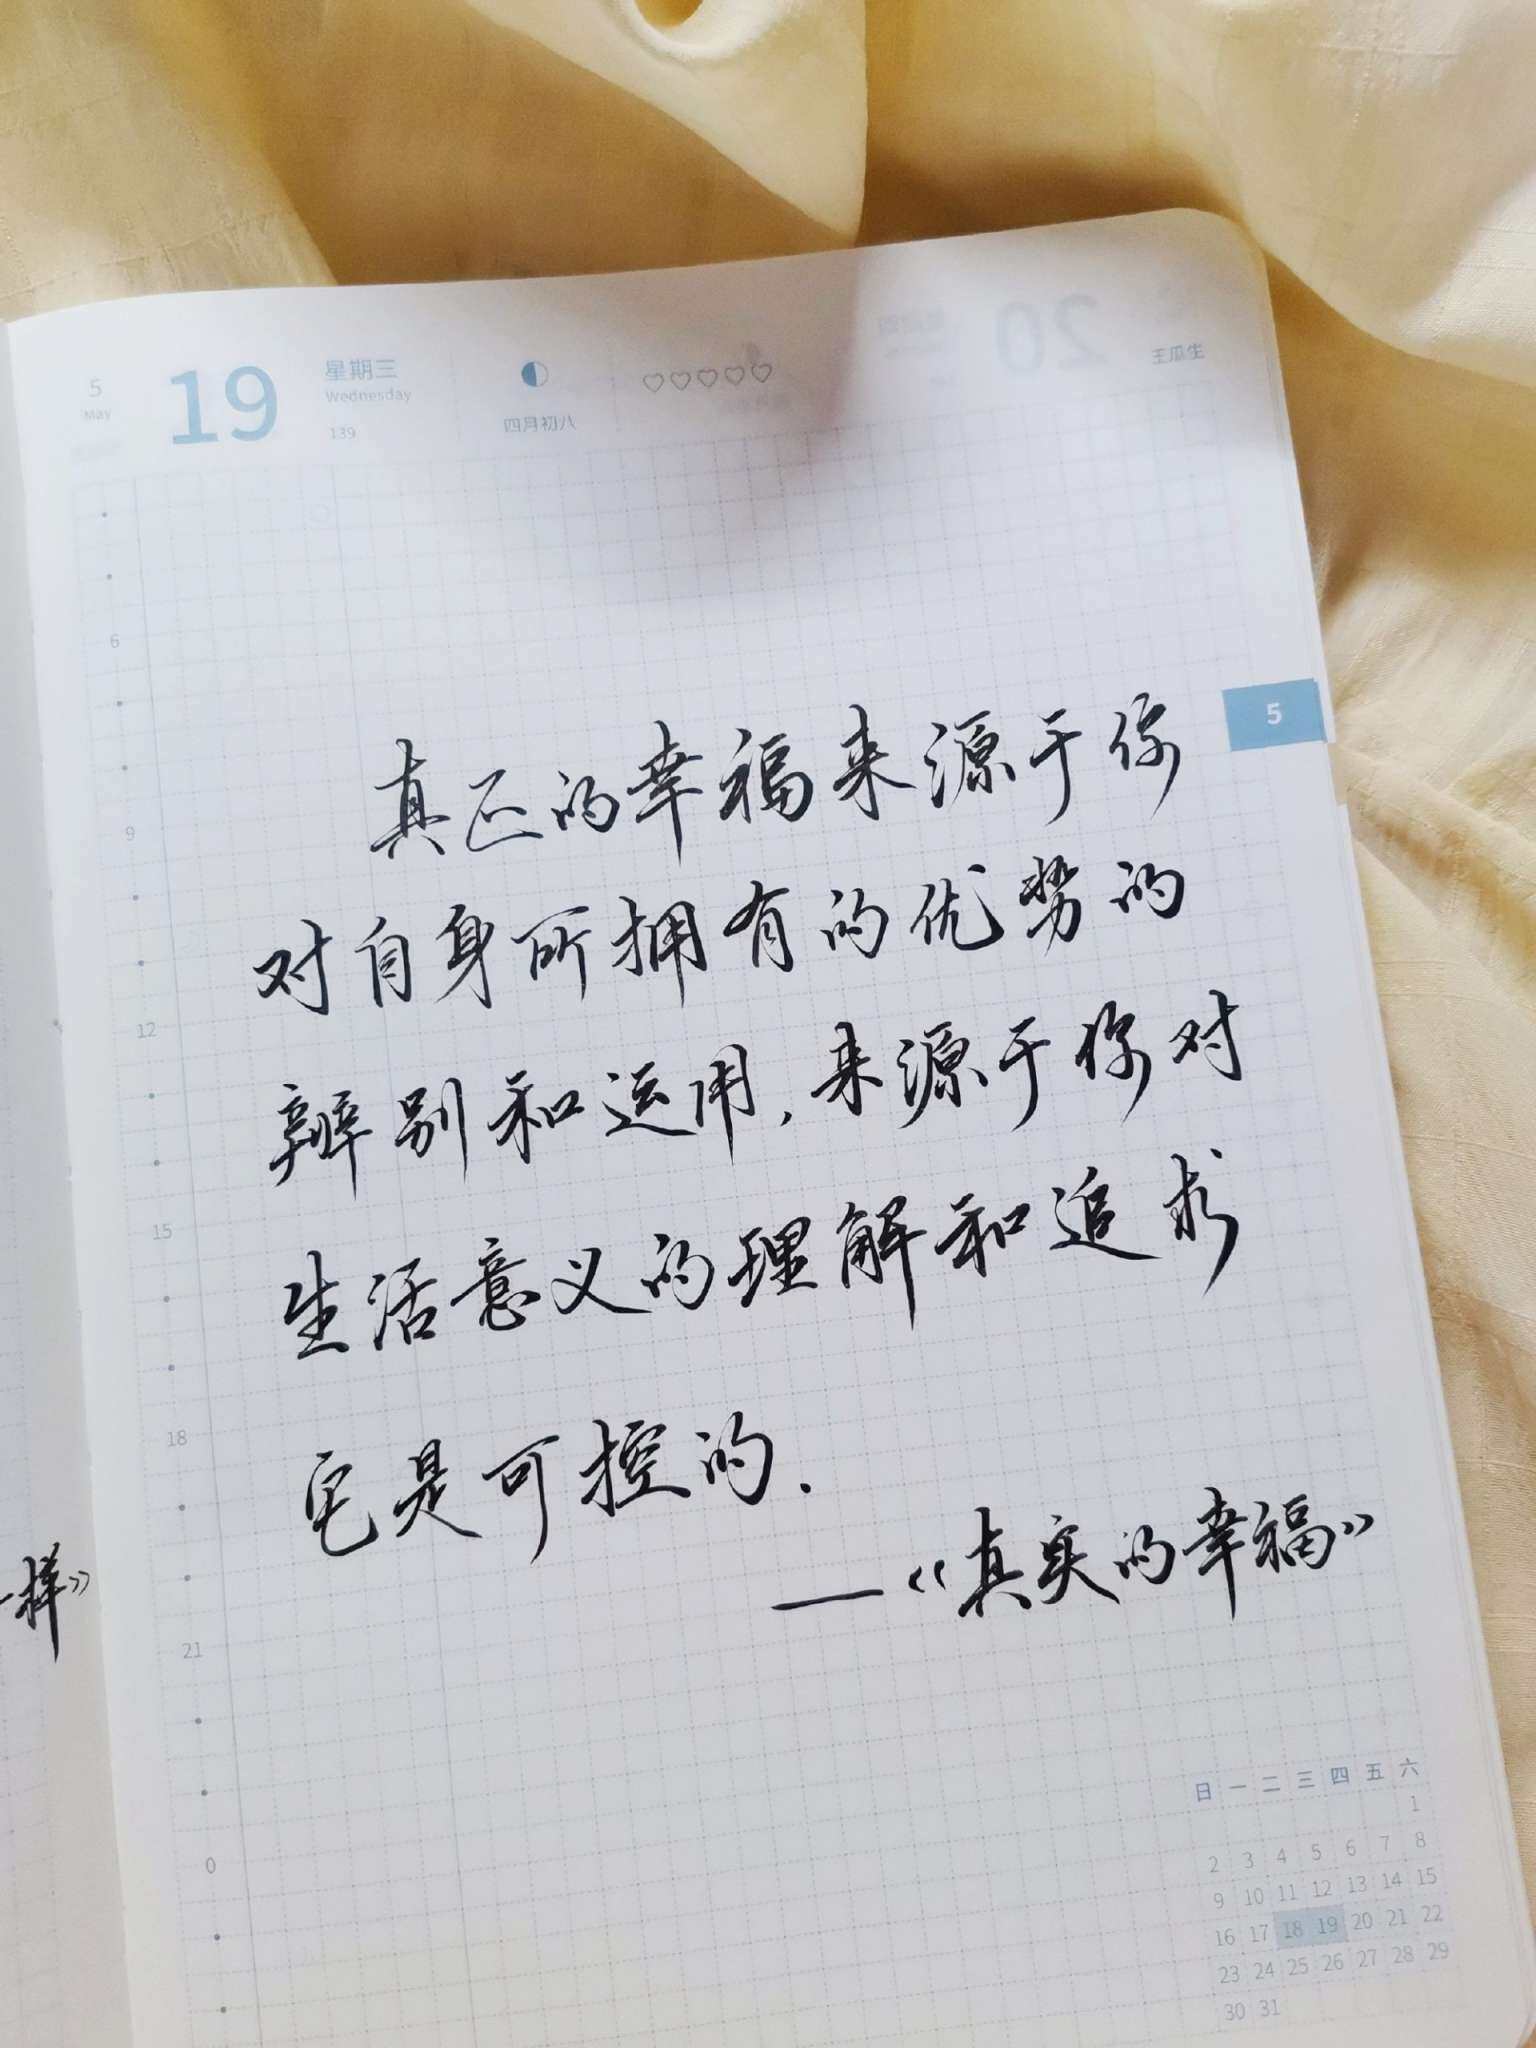 5
May
19
星期三
Wednesday
139
四月初八
王瓜生
20
5
6
9
12
15
18
21
0
真正的幸福来源于你
对自身所拥有的优势的
辨别和运用,来源于你对
生活意义的理解和追求
它是可控的.
——《真实的幸福》
一样》
日 一 二 三 四 五 六
1
2 3 4 5 6 7 8
9 10 11 12 13 14 15
16 17 18 19 20 21 22
23 24 25 26 27 28 29
30 31